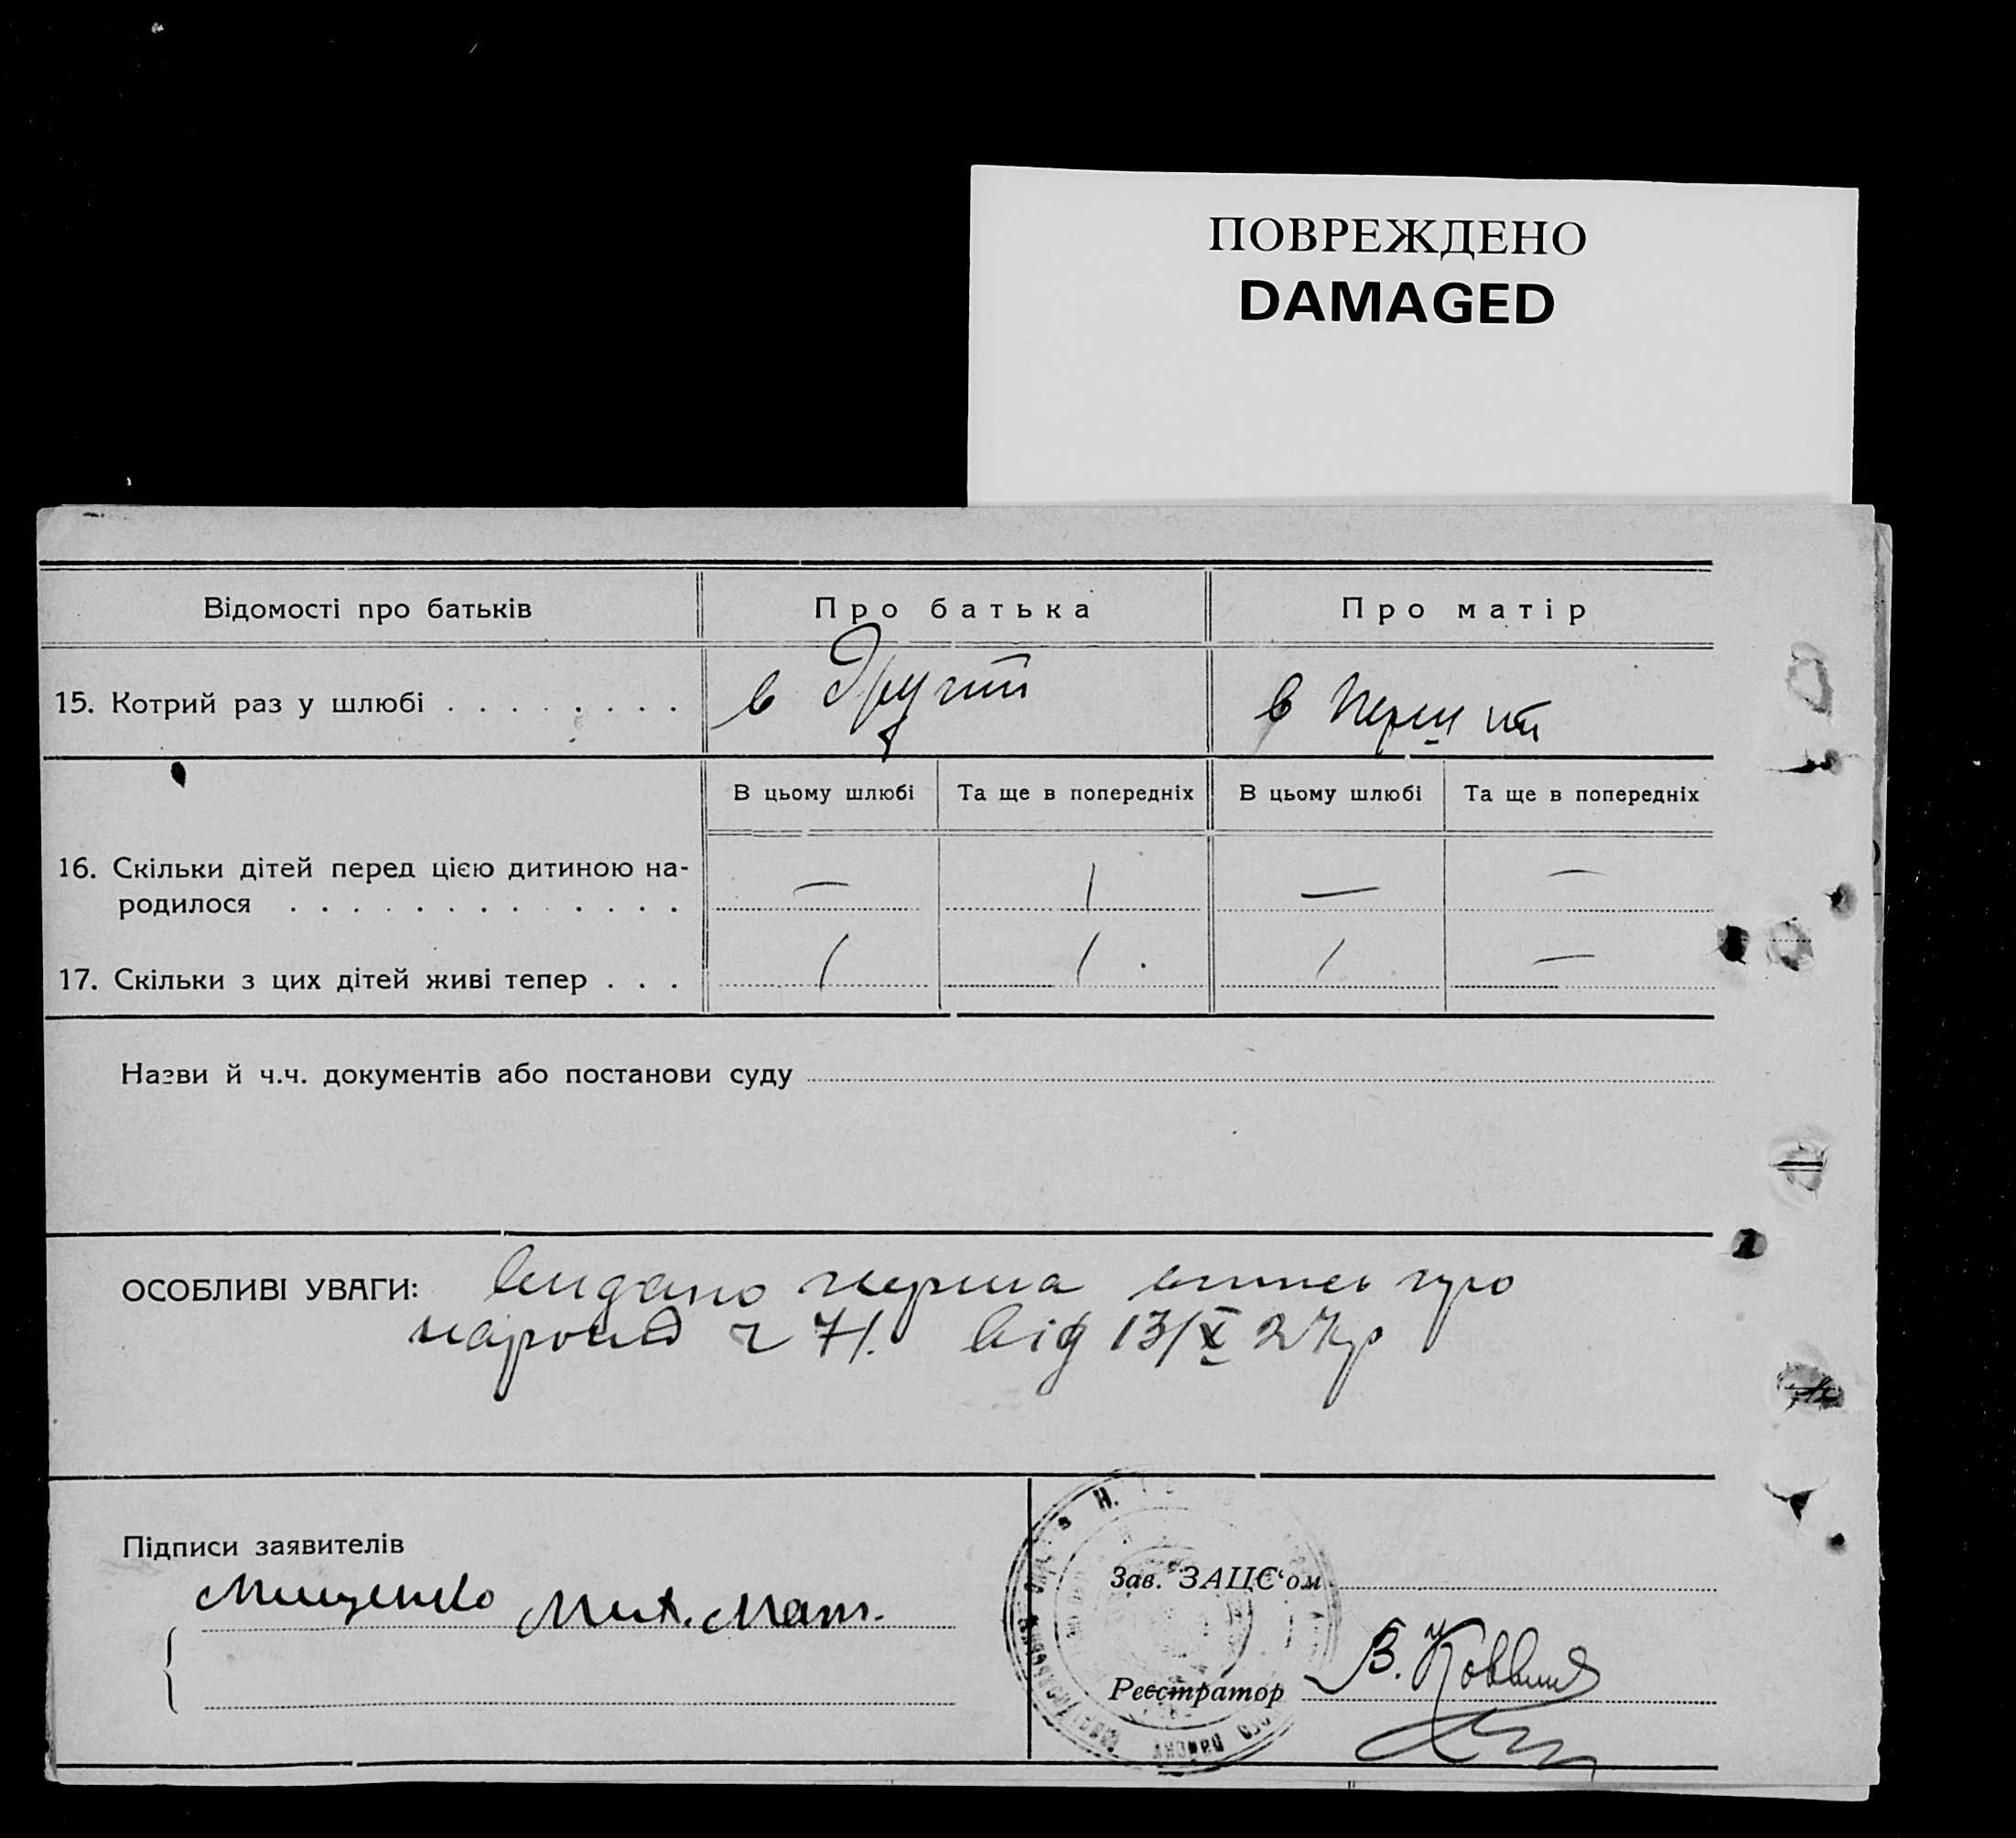 ПОВРЕЖДЕНО
DAMAGED
Відомості про батьків
Про батька
Про матір
15. Котрий раз у шлюбі . . . . . . . .
в Другий
в Перший
В цьому шлюбі
Та ще в попередніх
В цьому шлюбі
Та ще в попередніх
16. Скільки дітей перед цією дитиною на-
родилося . . . . . . . . . . . . .
— 1 — —
17. Скільки з цих дітей живі тепер . . .
1 1 1 —
Назви й ч.ч. документів або постанови суду
ОСОБЛИВІ УВАГИ: видано перша випис про
народ ч 71. від 13/X 27р
Підписи заявителів
Мищенко Мих. Мат.
Зав. ЗАЦС‘ом
Реєстратор В.